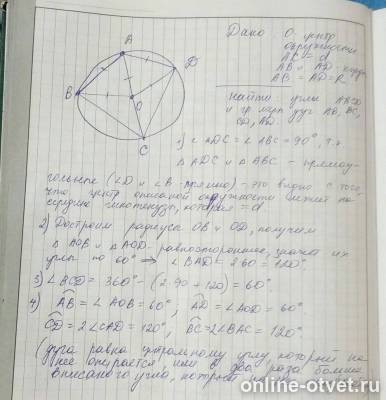 A
B
C
D
O
Дано O-центр
окружности
AC = d
AB и AD - хорды
AB = AD = R
найти углы ABCD
и гр. меры дуг AB, BC,
CD, AD.
1) ∠ADC = ∠ABC = 90°, т.к.
△ADC и △ABC - прямоу-
гольные (∠D и ∠B - прямые) - это видно с того,
что центр описанной окружности лежит на
середине гипотенузы, которая = d
2) Достроим радиусы OB и OD, получим
△AOB и △AOD - равносторонние, значит их
углы по 60° ⇒ ∠BAD = 2·60 = 120°
3) ∠BCD = 360° - (2·90 + 120) = 60°
4) AB = ∠AOB = 60°, AD = ∠AOD = 60°
CD = 2∠CAD = 120°, BC = 2∠BAC = 120°
(дуга равна центральному углу, который на
нее опирается или в два раза больше
вписаного угла, который
online-otvet.ru